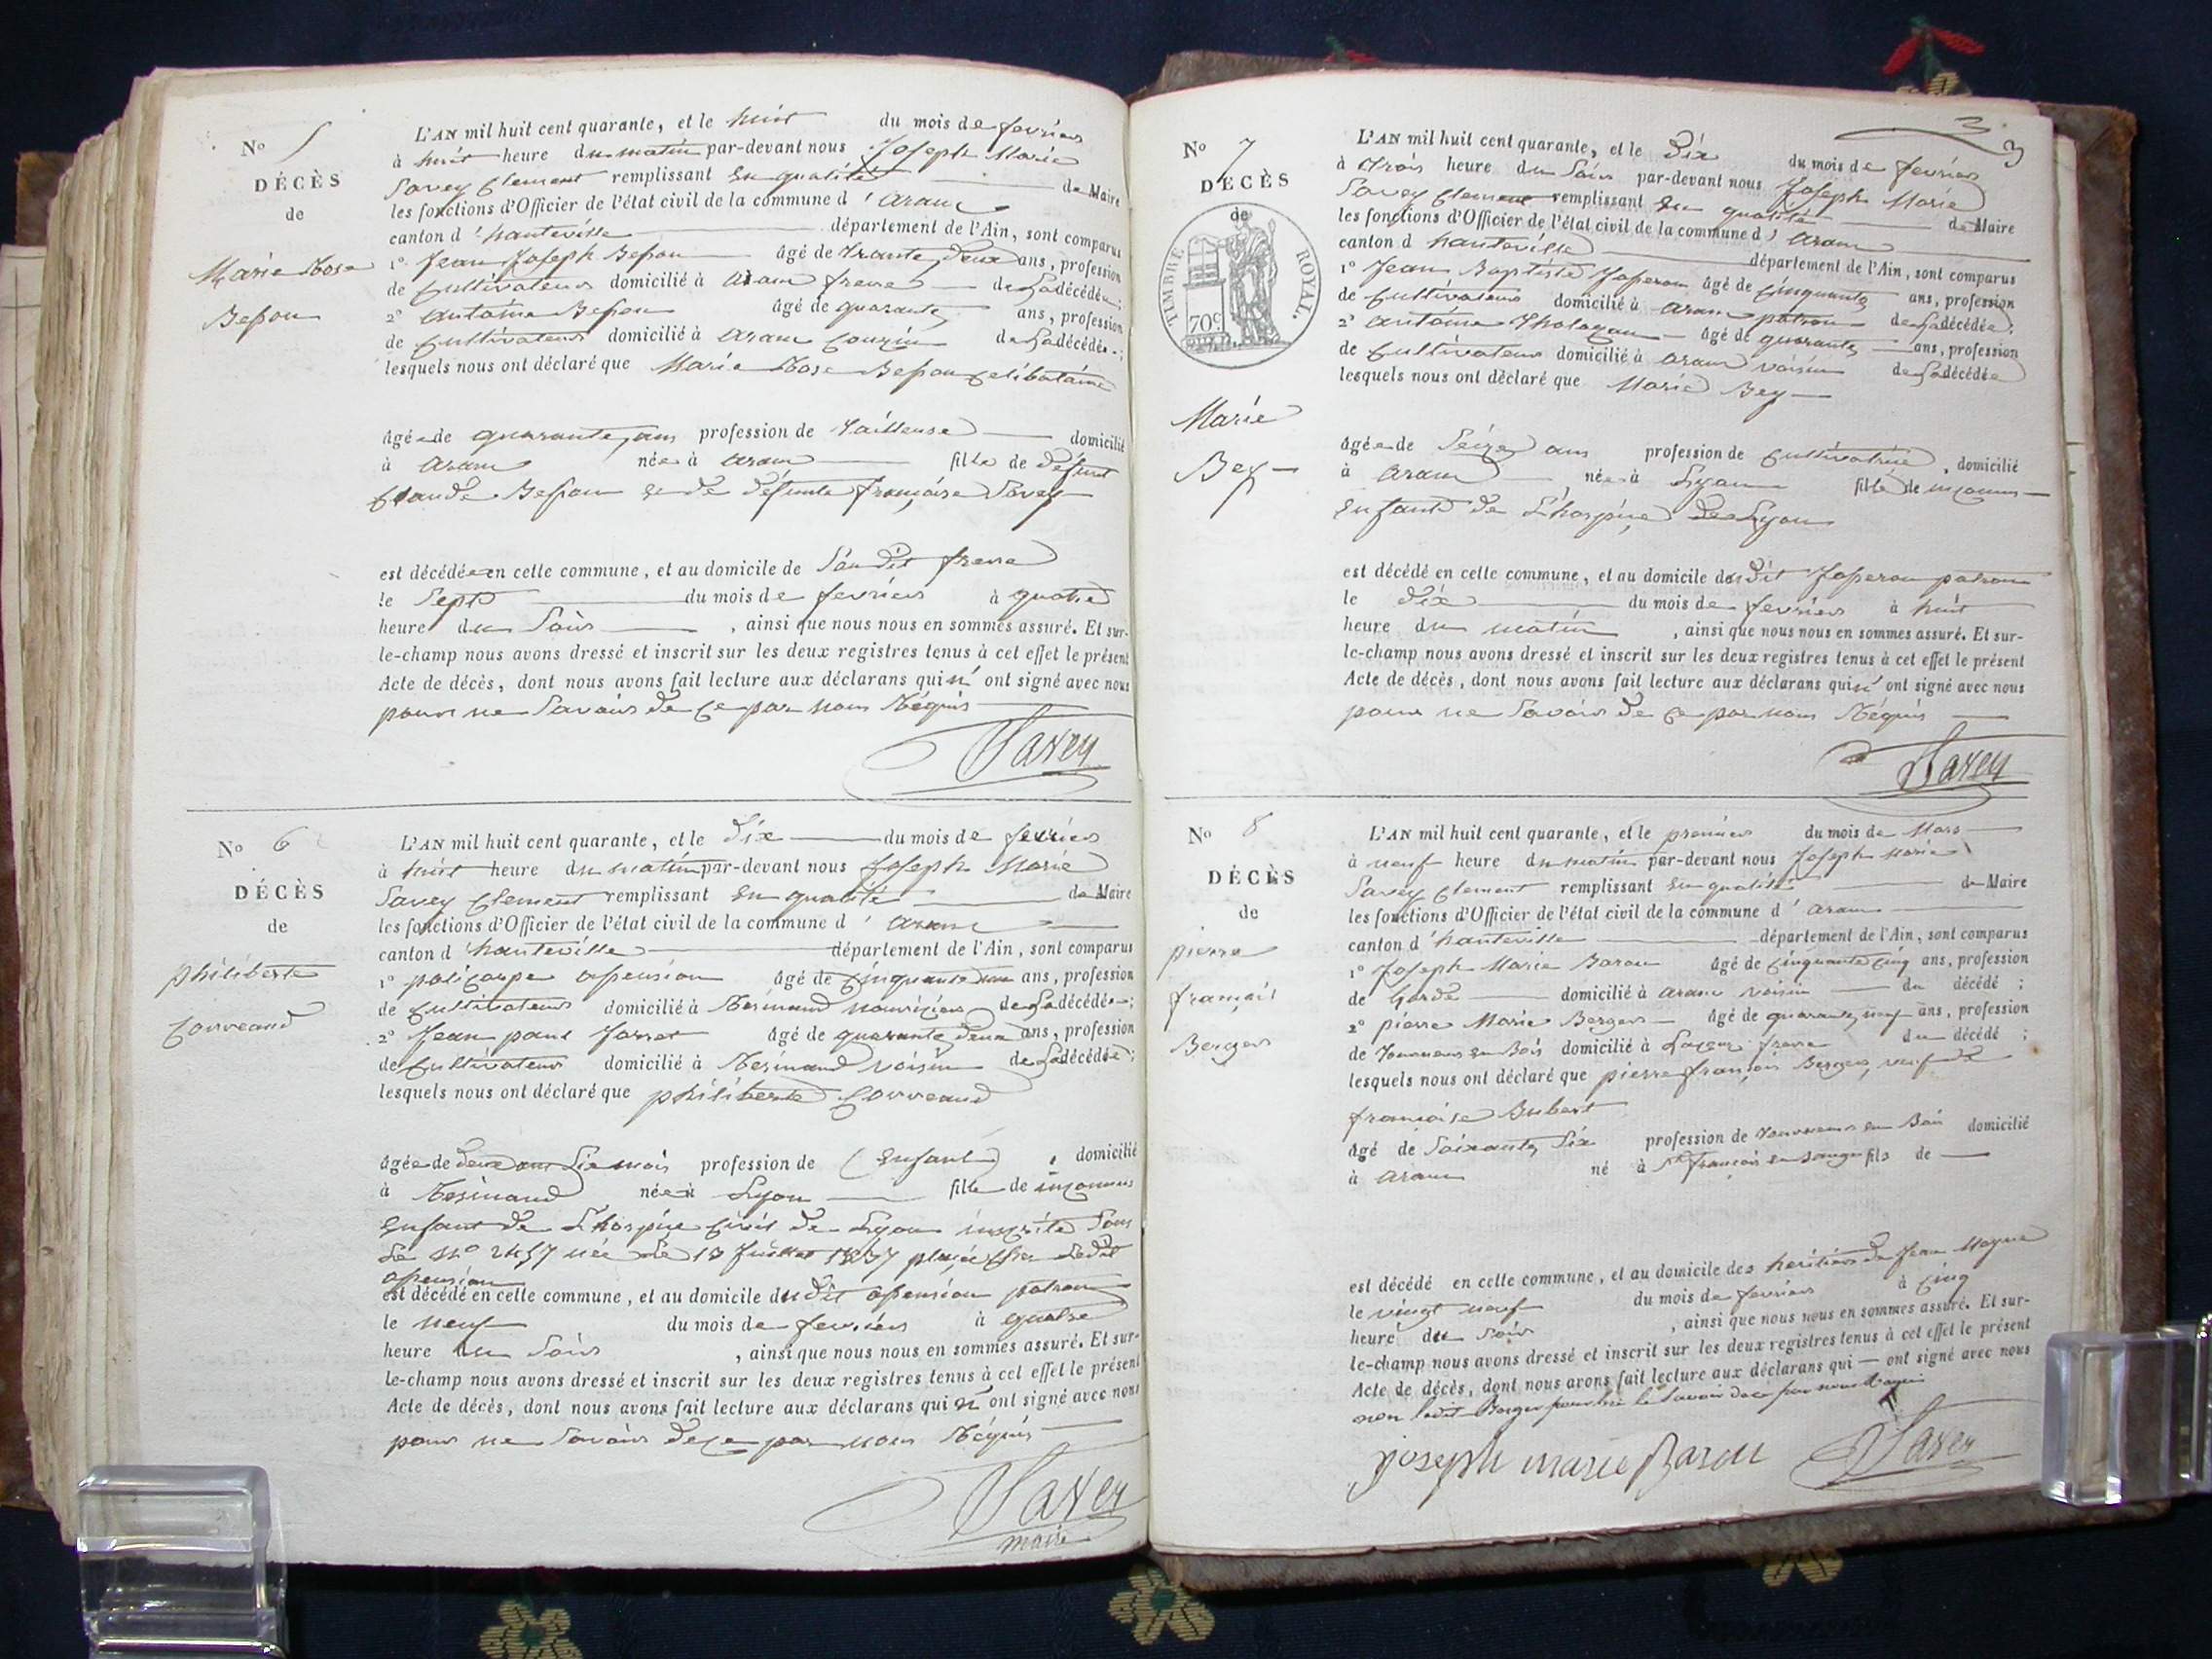 No 5
DÉCÈS
de
Marie Rose
Bepou
L'AN mil huit cent quarante, et le huit du mois de fevrier
à huit heure du matin par-devant nous Joseph Marie
Savey Clement remplissant en qualité de Maire
les fonctions d'Officier de l'état civil de la commune d' aranc
canton d' hauteville département de l'Ain, sont comparus
1° Jean Joseph Bepou âgé de trante deux ans, profession
de Cultivateur domicilié à aranc frere de La décédée;
2° antoine Bepou âgé de quarante ans, profession
de Cultivateur domicilié à aranc Couzin de La décédée;
lesquels nous ont déclaré que Marie Rose Bepou Celibataire
âgée de quarante, ans profession de tailleuse domicilié
à aranc née à aranc fille de defunt
Claude Bepou et de defunte françoise Savey
est décédée en cette commune, et au domicile de Son dit frere
le Sept du mois de fevrier à quatre
heure du Soir, ainsi que nous nous en sommes assuré. Et sur-
le-champ nous avons dressé et inscrit sur les deux registres tenus à cet effet le présent
Acte de décès, dont nous avons fait lecture aux déclarans qui n' ont signé avec nous
pour ne Savoir de ce par nous Réquis
Savey
No 6
DÉCÈS
de
philiberte
Corveaud
L'AN mil huit cent quarante, et le dix du mois de fevrier
à huit heure du matin par-devant nous Joseph Marie
Savey Clement remplissant en qualité de Maire
les fonctions d'Officier de l'état civil de la commune d' aranc
canton d' hauteville département de l'Ain, sont comparus
1° policarpe apension âgé de Cinquante un ans, profession
de Cultivateur domicilié à Resinand nourricier de La décédée;
2° Jean paul Jarret âgé de quarante deux ans, profession
de Cultivateur domicilié à Resinand voisin de La décédée;
lesquels nous ont déclaré que philiberte Corveaud
âgée de deux ans Six mois profession de (Enfant), domicilié
à Resinand née à Lyon fille de inconnus
Enfant de L'hospice Civil de Lyon inscrite Sous
Le No 2457 née Le 17 Juillet 1837 placée chez Ledit
apension
est décédé en cette commune, et au domicile dudit apension patron
le neuf du mois de fevrier à quatre
heure du Soir, ainsi que nous nous en sommes assuré. Et sur-
le-champ nous avons dressé et inscrit sur les deux registres tenus à cet effet le présent
Acte de décès, dont nous avons fait lecture aux déclarans qui n' ont signé avec nous
pour ne Savoir de ce par nous Réquis
Savey
maire
3
3
No 7
DÉCÈS
de
TIMBRE ROYAL.
70c
Marie
Bey
L'AN mil huit cent quarante, et le Dix du mois de fevrier
à trois heure du Soir par-devant nous Joseph Marie
Savey Clement remplissant en qualité de Maire
les fonctions d'Officier de l'état civil de la commune d' aranc
canton d hauteville département de l'Ain, sont comparus
1° Jean Baptiste Japeron âgé de Cinquante ans, profession
de Cultivateur domicilié à aranc patron de La décédée;
2° antoine tholozan âgé de quarante ans, profession
de Cultivateur domicilié à aranc voisin de La décédée
lesquels nous ont déclaré que Marie Bey
âgée de Seize ans profession de Cultivatrice, domicilié
à aranc née à Lyon fille de inconnus
Enfant de L'hospice de Lyon
est décédé en cette commune, et au domicile dudit Japeron patron
le dix du mois de fevrier à huit
heure du matin, ainsi que nous nous en sommes assuré. Et sur-
le-champ nous avons dressé et inscrit sur les deux registres tenus à cet effet le présent
Acte de décès, dont nous avons fait lecture aux déclarans qui n' ont signé avec nous
pour ne Savoir de ce par nous Réquis
Savey
No 8
DÉCÈS
de
pierre
françois
Berger
L'AN mil huit cent quarante, et le premier du mois de Mars
à neuf heure du matin par-devant nous Joseph Marie
Savey Clement remplissant en qualité de Maire
les fonctions d'Officier de l'état civil de la commune d' aranc
canton d' hauteville département de l'Ain, sont comparus
1° Joseph Marie Barou âgé de Cinquante Cinq ans, profession
de Garde domicilié à aranc voisin du décédé;
2° pierre Marie Berger âgé de quarante, neuf ans, profession
de tourneur en Bois domicilié à frere du décédé;
lesquels nous ont déclaré que pierre françois Berger, veuf de
françoise Bubert
âgé de Soixante, Six profession de tourneur en Bois domicilié
à aranc né à St françois en Bauge fils de
est décédé en cette commune, et au domicile des héritiers de Jean
le vingt neuf du mois de fevrier à Cinq
heure du soir, ainsi que nous nous en sommes assuré. Et sur-
le-champ nous avons dressé et inscrit sur les deux registres tenus à cet effet le présent
Acte de décès, dont nous avons fait lecture aux déclarans qui — ont signé avec nous
non ledit Berger pour ne le Savoir de ce par nous Requis
joseph marie Barou Savey